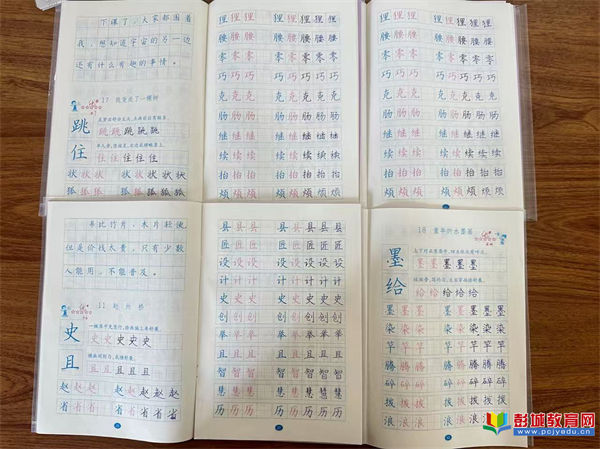 下课了，大家都围着
我，想知道宇宙的另一边
还有什么有趣的事情。
17 我变成了一棵树
跳 跳跳跳跳跳
住 住住住住住
状状状 状状状状
狐狐狐 狐狐狐狐
狸狸狸 狸狸狸狸
腰腰腰 腰腰腰腰
零零零 零零零零
巧巧巧 巧巧巧巧
克克克 克克克克
肠肠肠 肠肠肠肠
继继继 继继继继
续续续 续续续续
抬抬抬 抬抬抬抬
烦烦烦 烦烦烦烦
狸狸狸 狸狸狸狸
腰腰腰 腰腰腰腰
零零零 零零零零
巧巧巧 巧巧巧巧
克克克 克克克克
肠肠肠 肠肠肠肠
继继继 继继继继
续续续 续续续续
抬抬抬 抬抬抬抬
烦烦烦 烦烦烦烦
书比竹片、木片轻便，
但是价钱太贵，只有少数
人能用，不能普及。
11 赵州桥
史 史史史史史
且 且且且且且
赵赵赵 赵赵赵赵
省省省 省省省省
县县县 县县县县
匠匠匠 匠匠匠匠
设设设 设设设设
计计计 计计计计
史史史 史史史史
创创创 创创创创
举举举 举举举举
且且且 且且且且
智智智 智智智智
慧慧慧 慧慧慧慧
历历历 历历历历
18 童年的水墨画
墨 墨墨墨墨墨
给 给给给给给
墨墨墨 墨墨墨墨
染染染 染染染染
竿竿竿 竿竿竿竿
腾腾腾 腾腾腾腾
碎碎碎 碎碎碎碎
拨拨拨 拨拨拨拨
浪浪浪 浪浪浪浪
彭城教育网
www.pcjyedu.cn